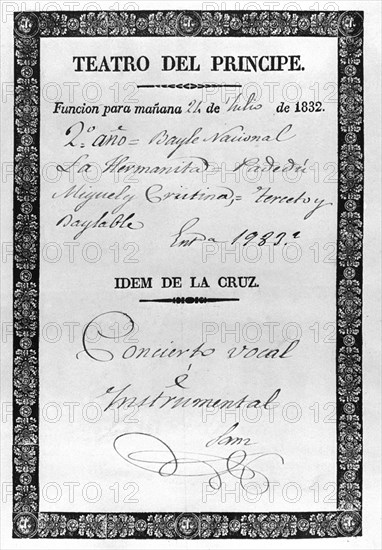 TEATRO DEL PRINCIPE.
Funcion para mañana 24 de Julio de 1832.
2.º año = Bayle Nacional
La Hermanita = Padedú
Miguel y Cristina = Terceto y
Baylable Entda 1983.r
IDEM DE LA CRUZ.
Concierto vocal
é
Instrumental
Sanz